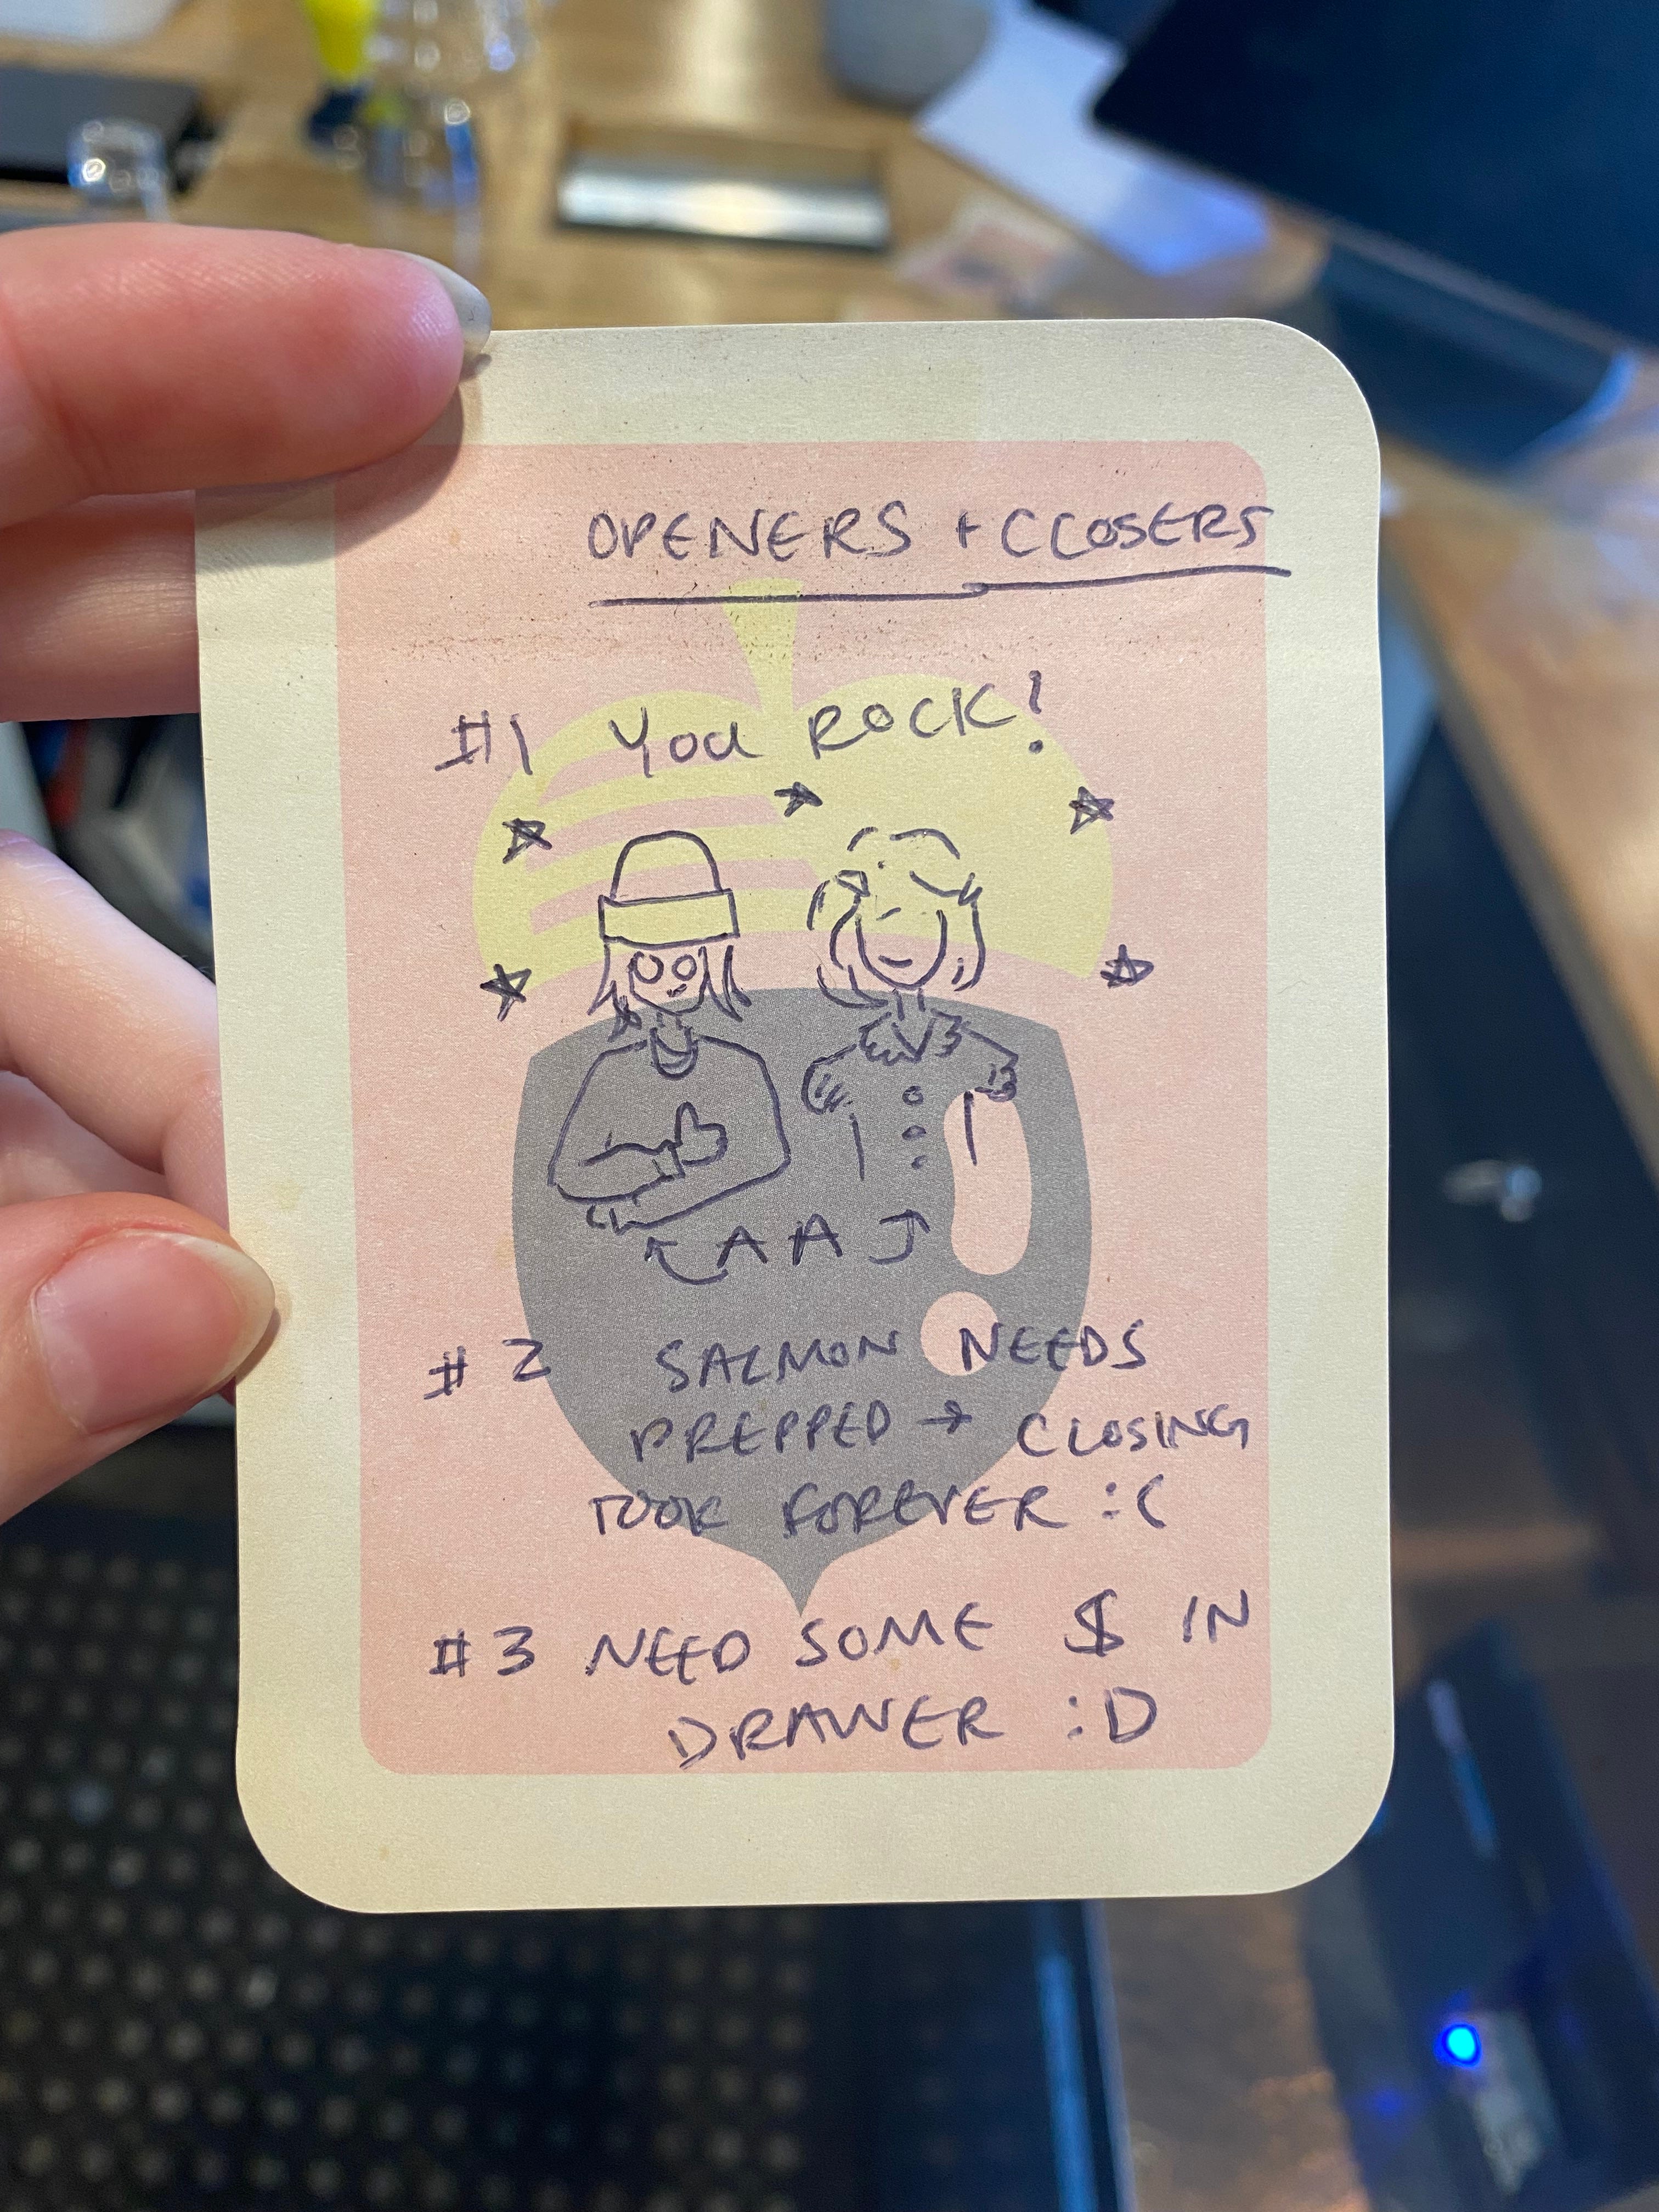 OPENERS + CLOSERS
#1 YOU ROCK!
AA
#2 SALMON NEEDS
PREPPED → CLOSING
TOOK FOREVER :(
#3 NEED SOME $ IN
DRAWER :D